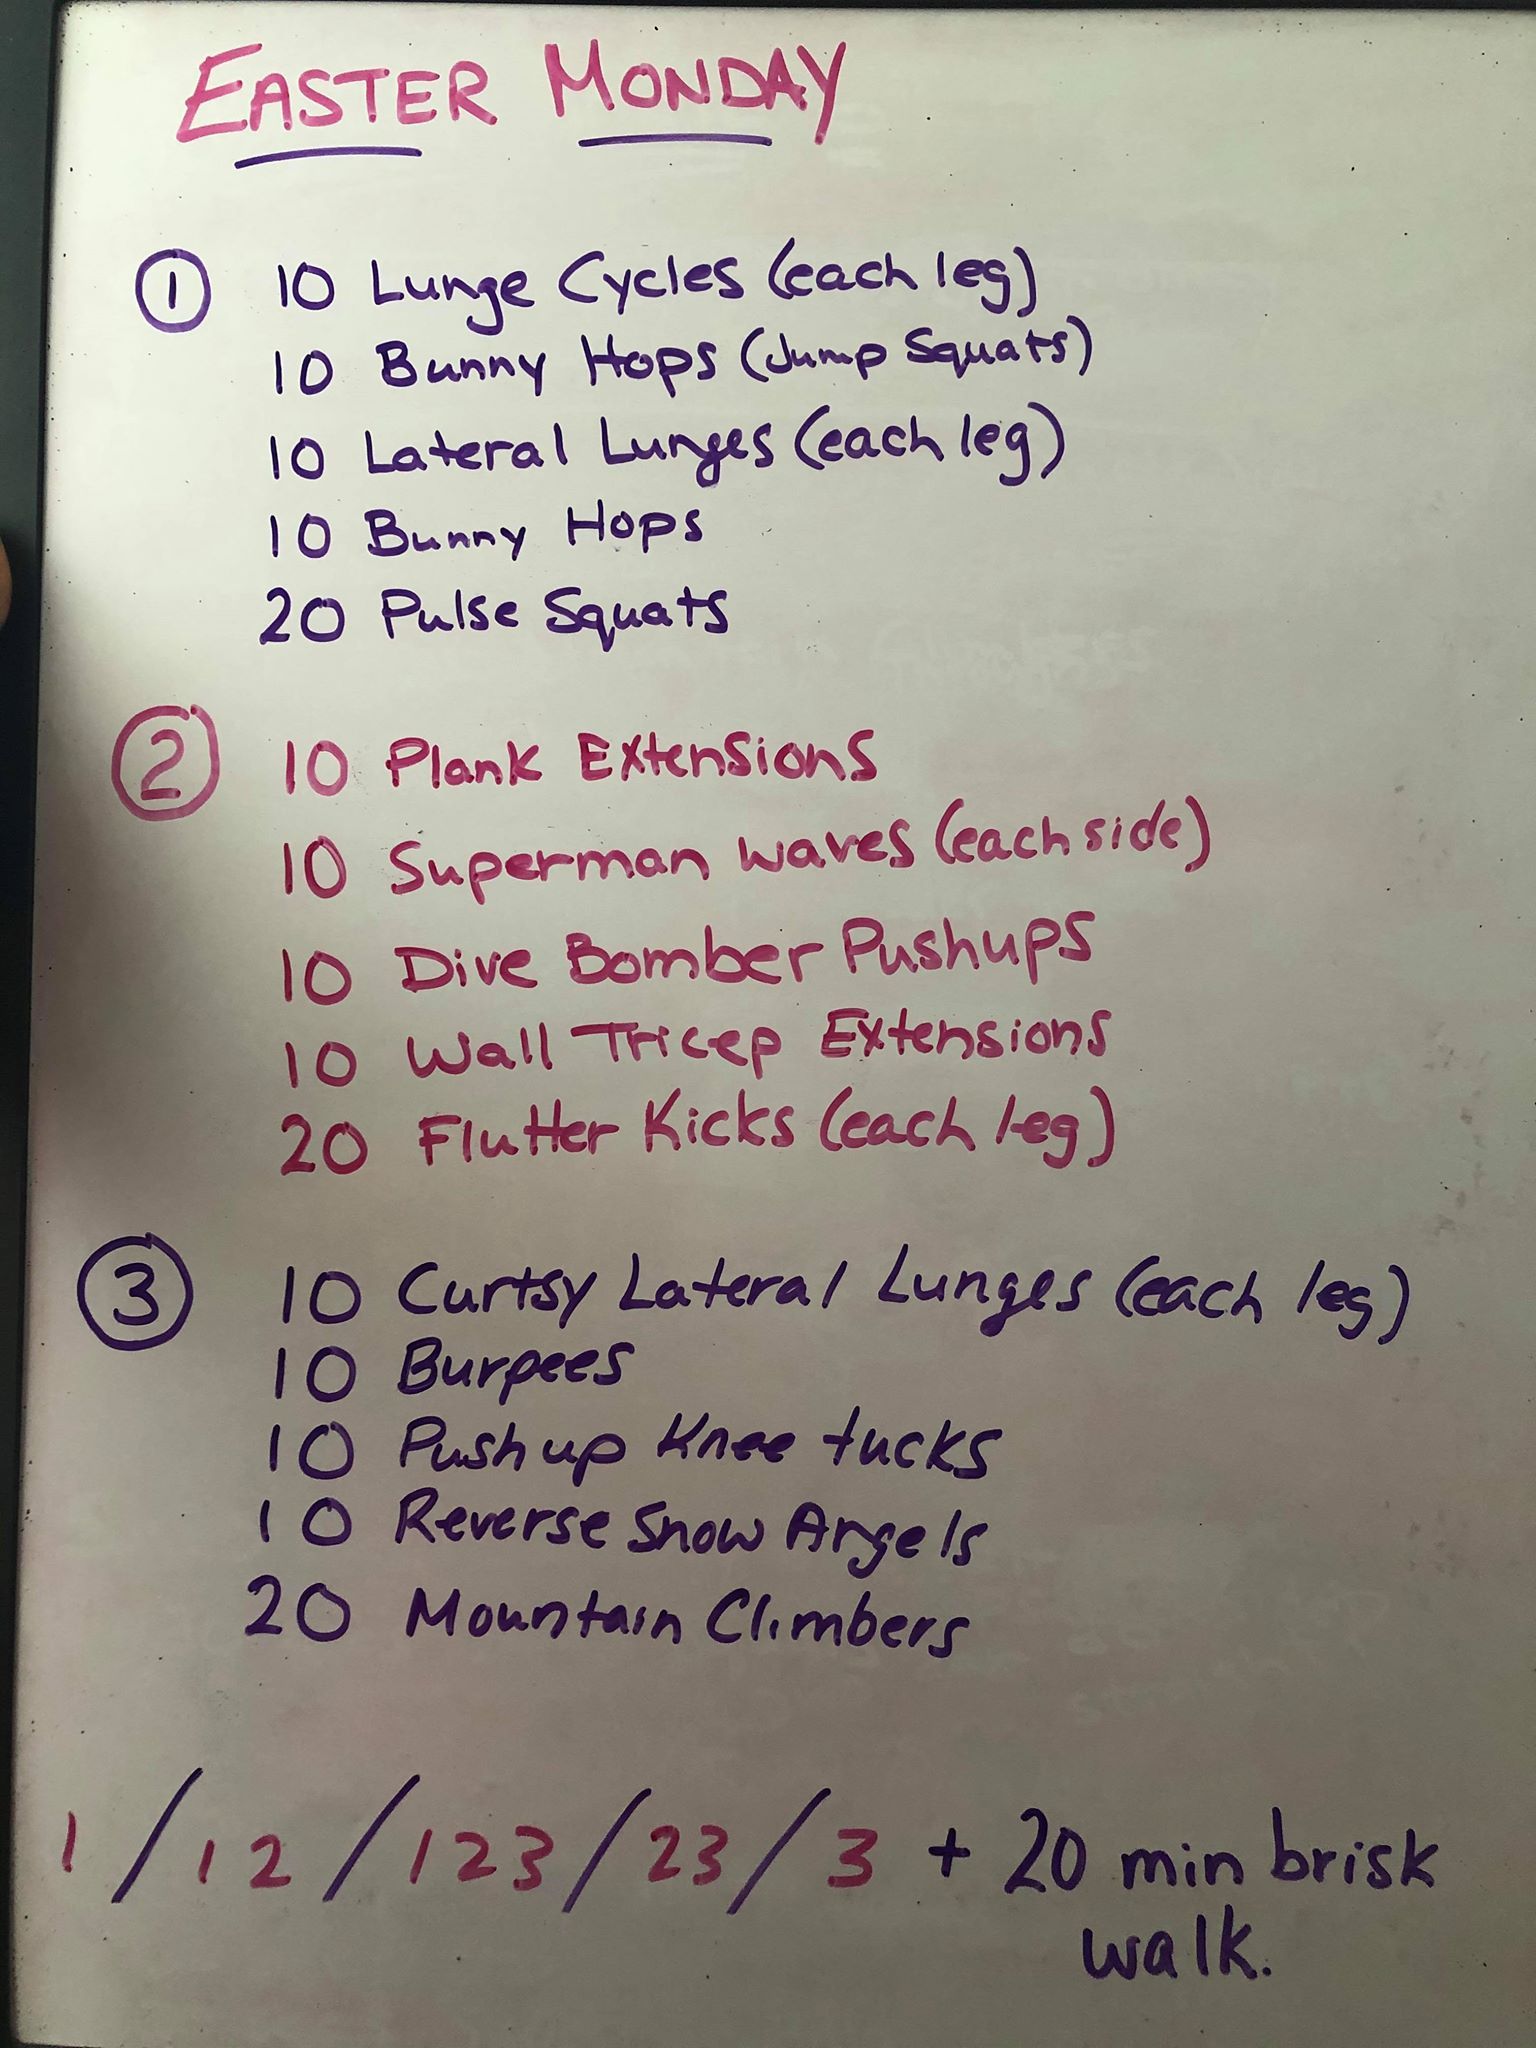 EASTER MONDAY
1 10 Lunge Cycles (each leg)
10 Bunny Hops (Jump Squats)
10 Lateral Lunges (each leg)
10 Bunny Hops
20 Pulse Squats
2 10 Plank Extensions
10 Superman waves (each side)
10 Dive Bomber Pushups
10 Wall Tricep Extensions
20 Flutter Kicks (each leg)
3 10 Curtsy Lateral Lunges (each leg)
10 Burpees
10 Push up Knee tucks
10 Reverse Snow Angels
20 Mountain Climbers
1 / 12 / 123 / 23 / 3 + 20 min brisk
walk.